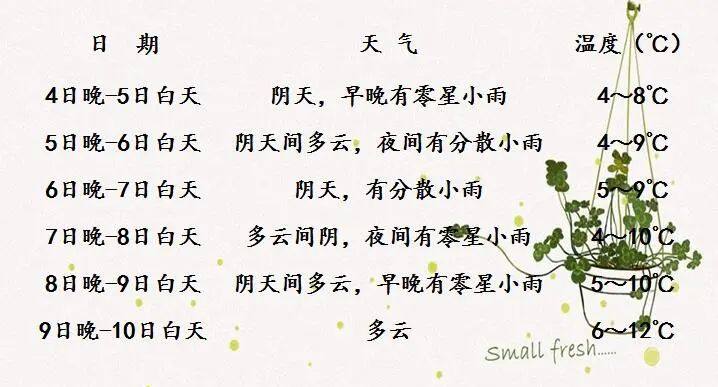 日 期 天 气 温度（℃）
4日晚-5日白天 阴天，早晚有零星小雨 4～8℃
5日晚-6日白天 阴天间多云，夜间有分散小雨 4～9℃
6日晚-7日白天 阴天，有分散小雨 5～9℃
7日晚-8日白天 多云间阴，夜间有零星小雨 4～10℃
8日晚-9日白天 阴天间多云，早晚有零星小雨 5～10℃
9日晚-10日白天 多云 6～12℃
Small fresh......